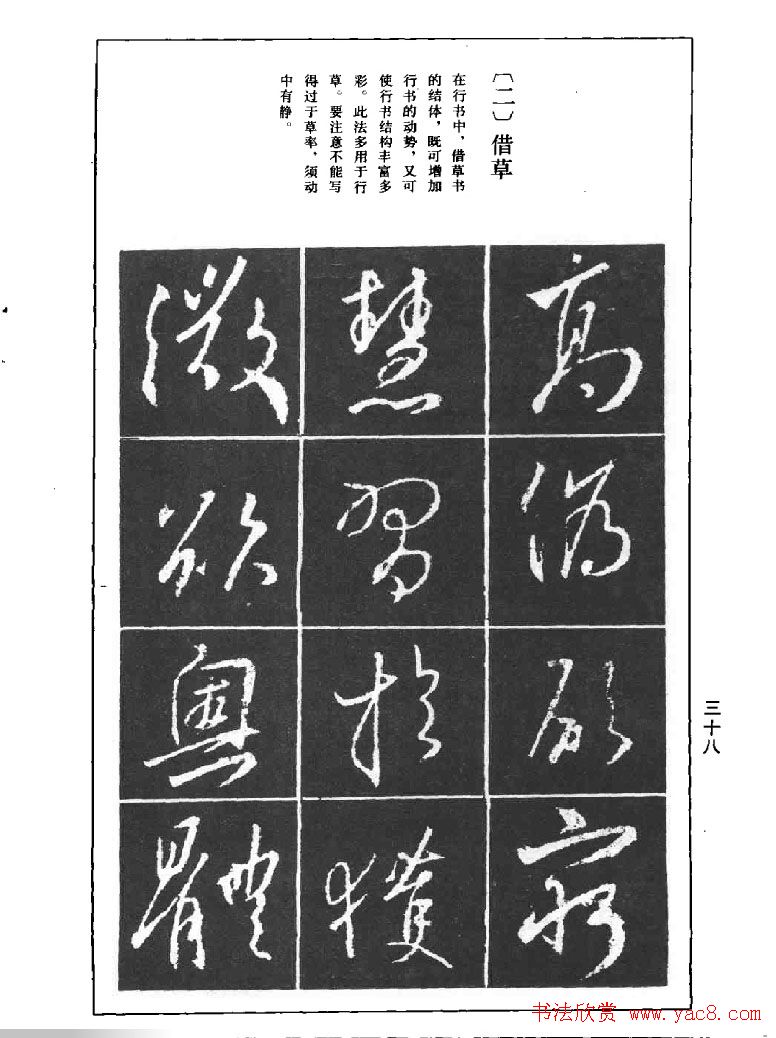 〔二〕借草
在行书中，借草书
的结体，既可增加
行书的动势，又可
使行书结构丰富多
彩。此法多用于行
草。要注意不能写
得过于草率，须动
中有静。
高偽窮
慧習於獲
微欲奧體
三十八
书法欣赏 www.yac8.com